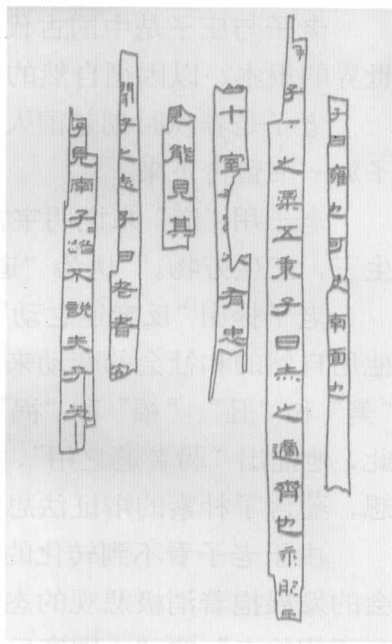 子曰雍也可以南面也
子之粟五秉子曰赤之適齊也乘肥
十室必有忠
見能見其
聞子之志子曰老者安
子見南子路不說夫子矢